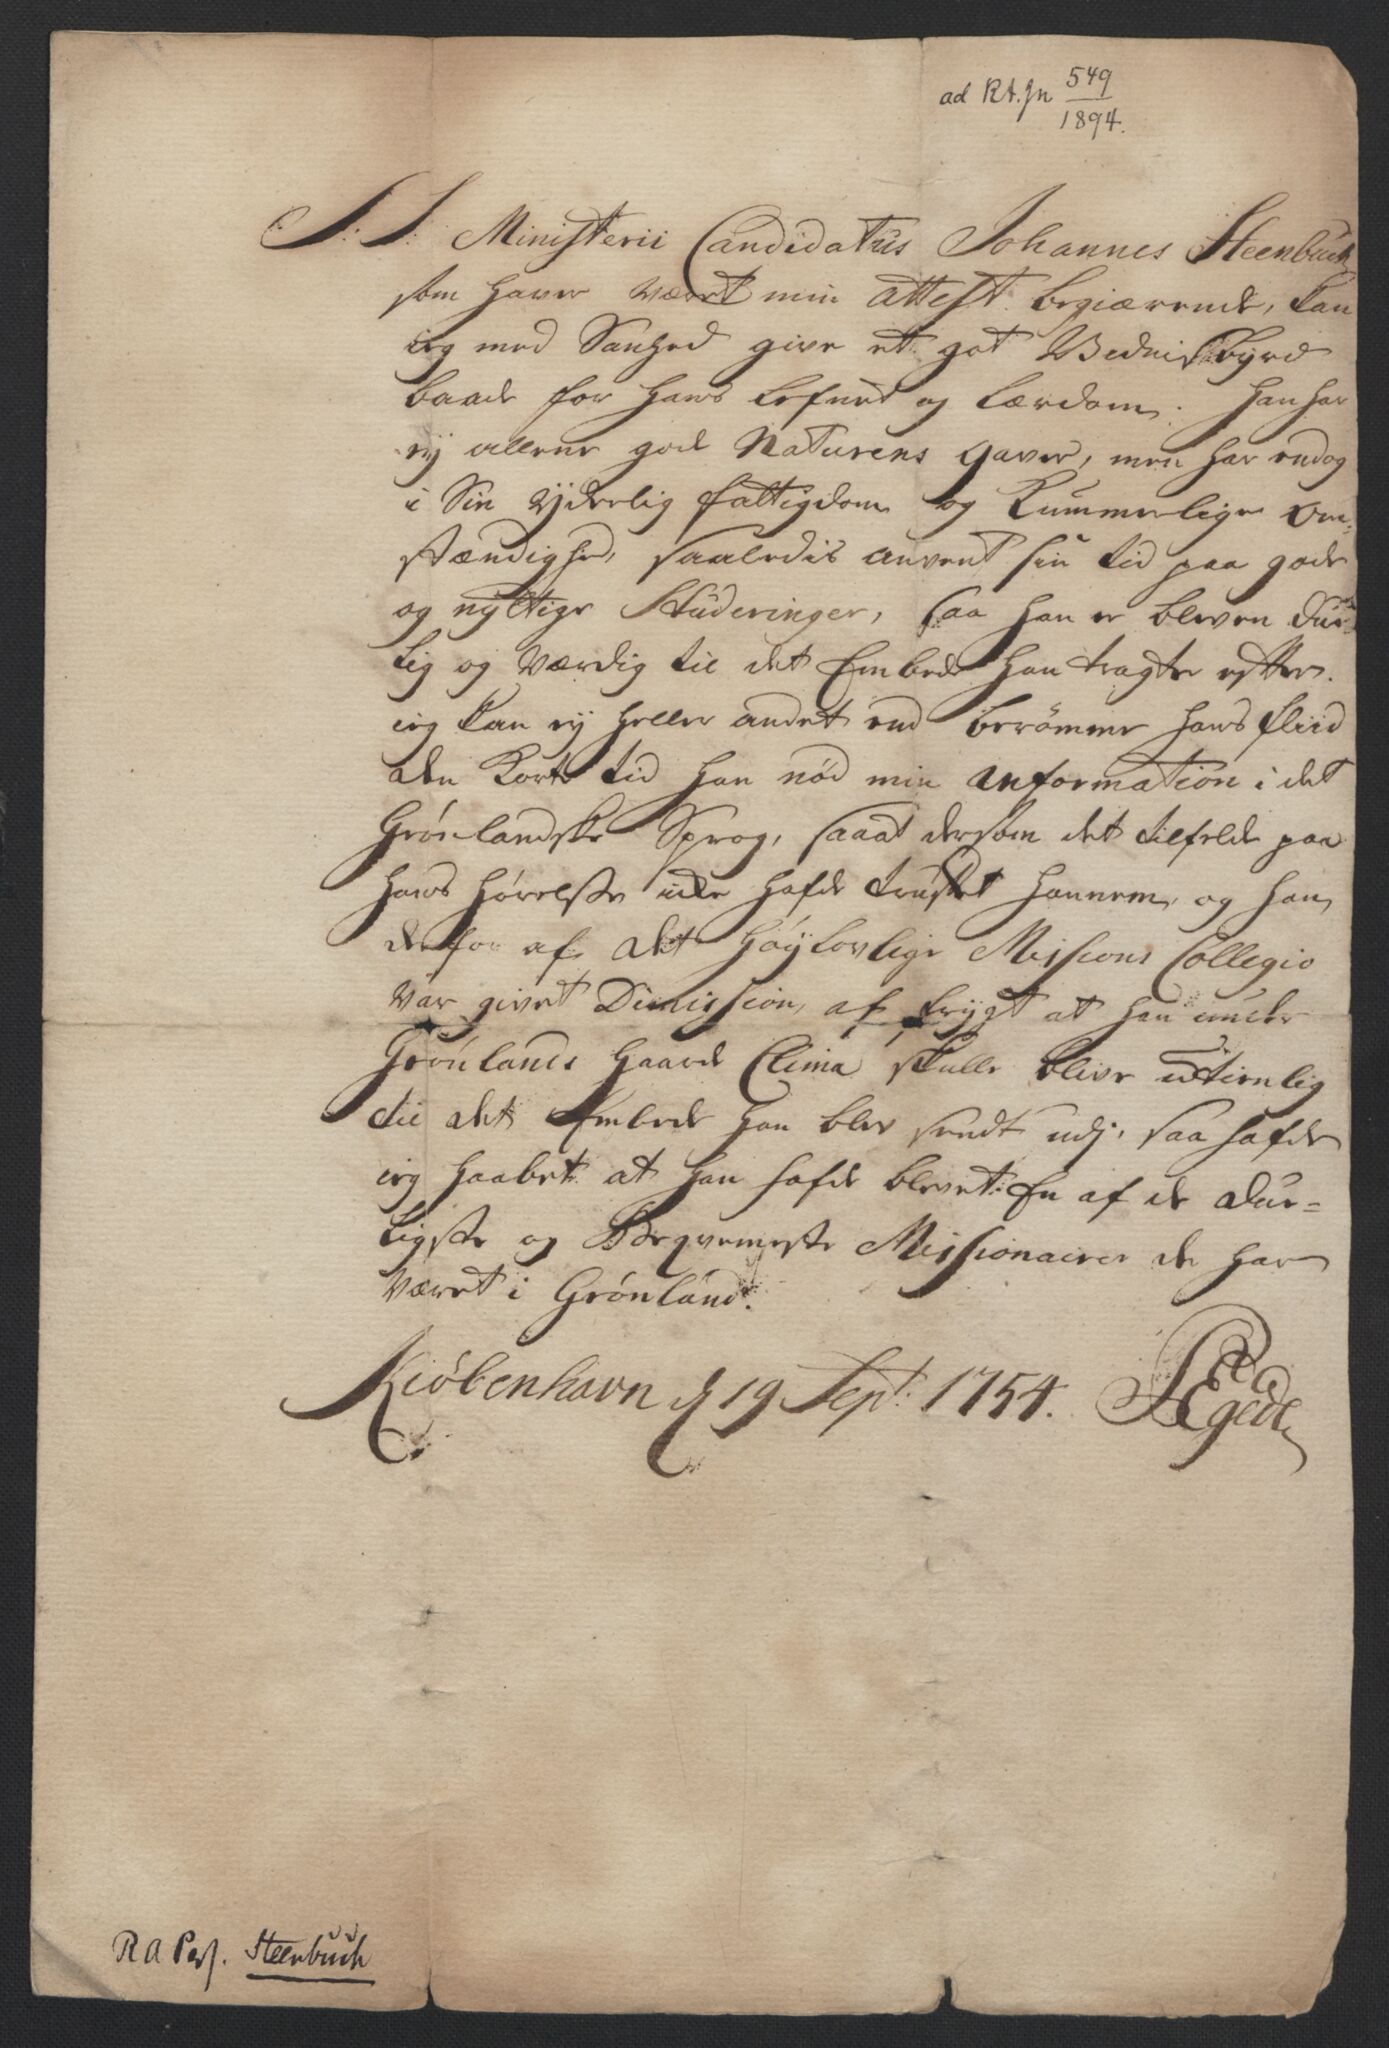 ad RA. Jn 549/1894.
S: S: Ministerii Candidatus Johannes Steenbuch
som haver været min attest begiærende, kan
ieg med Sanhed give et got Vidnisbyrd
baade for hans lefnet og lærdom. Han har
ej allene gode Naturens gaver, men har endog
i Sin yderlig fattigdom og kummerlige om-
stændighed, saaledis anvent sin tid paa gode
og nyttige Studeringer, saa han er bleven due-
lig og værdig til det Embede han tragter efter.
ieg kan ej heller andet end berømme hans fliid
den korte tid han nød min information i det
Grønlandske Sprog, saa at dersom det tilfelde paa
hans hørelse icke hafde trukket hannem, og han
derfor af det Høylovlige Missions Collegio
var givet Dimission, af frygt at han under
Grønlands haarde Clima skulle blive utienlig
til det Embede han blev sendt udj, saa hafde
ieg haabet at han hafde blevet En af de due-
ligste og Beqvemmeste Missionairer der har
været i Grønland.
Kiøbenhavn d 19 Sept: 1754. P Egede
R A Pers. Steenbuch